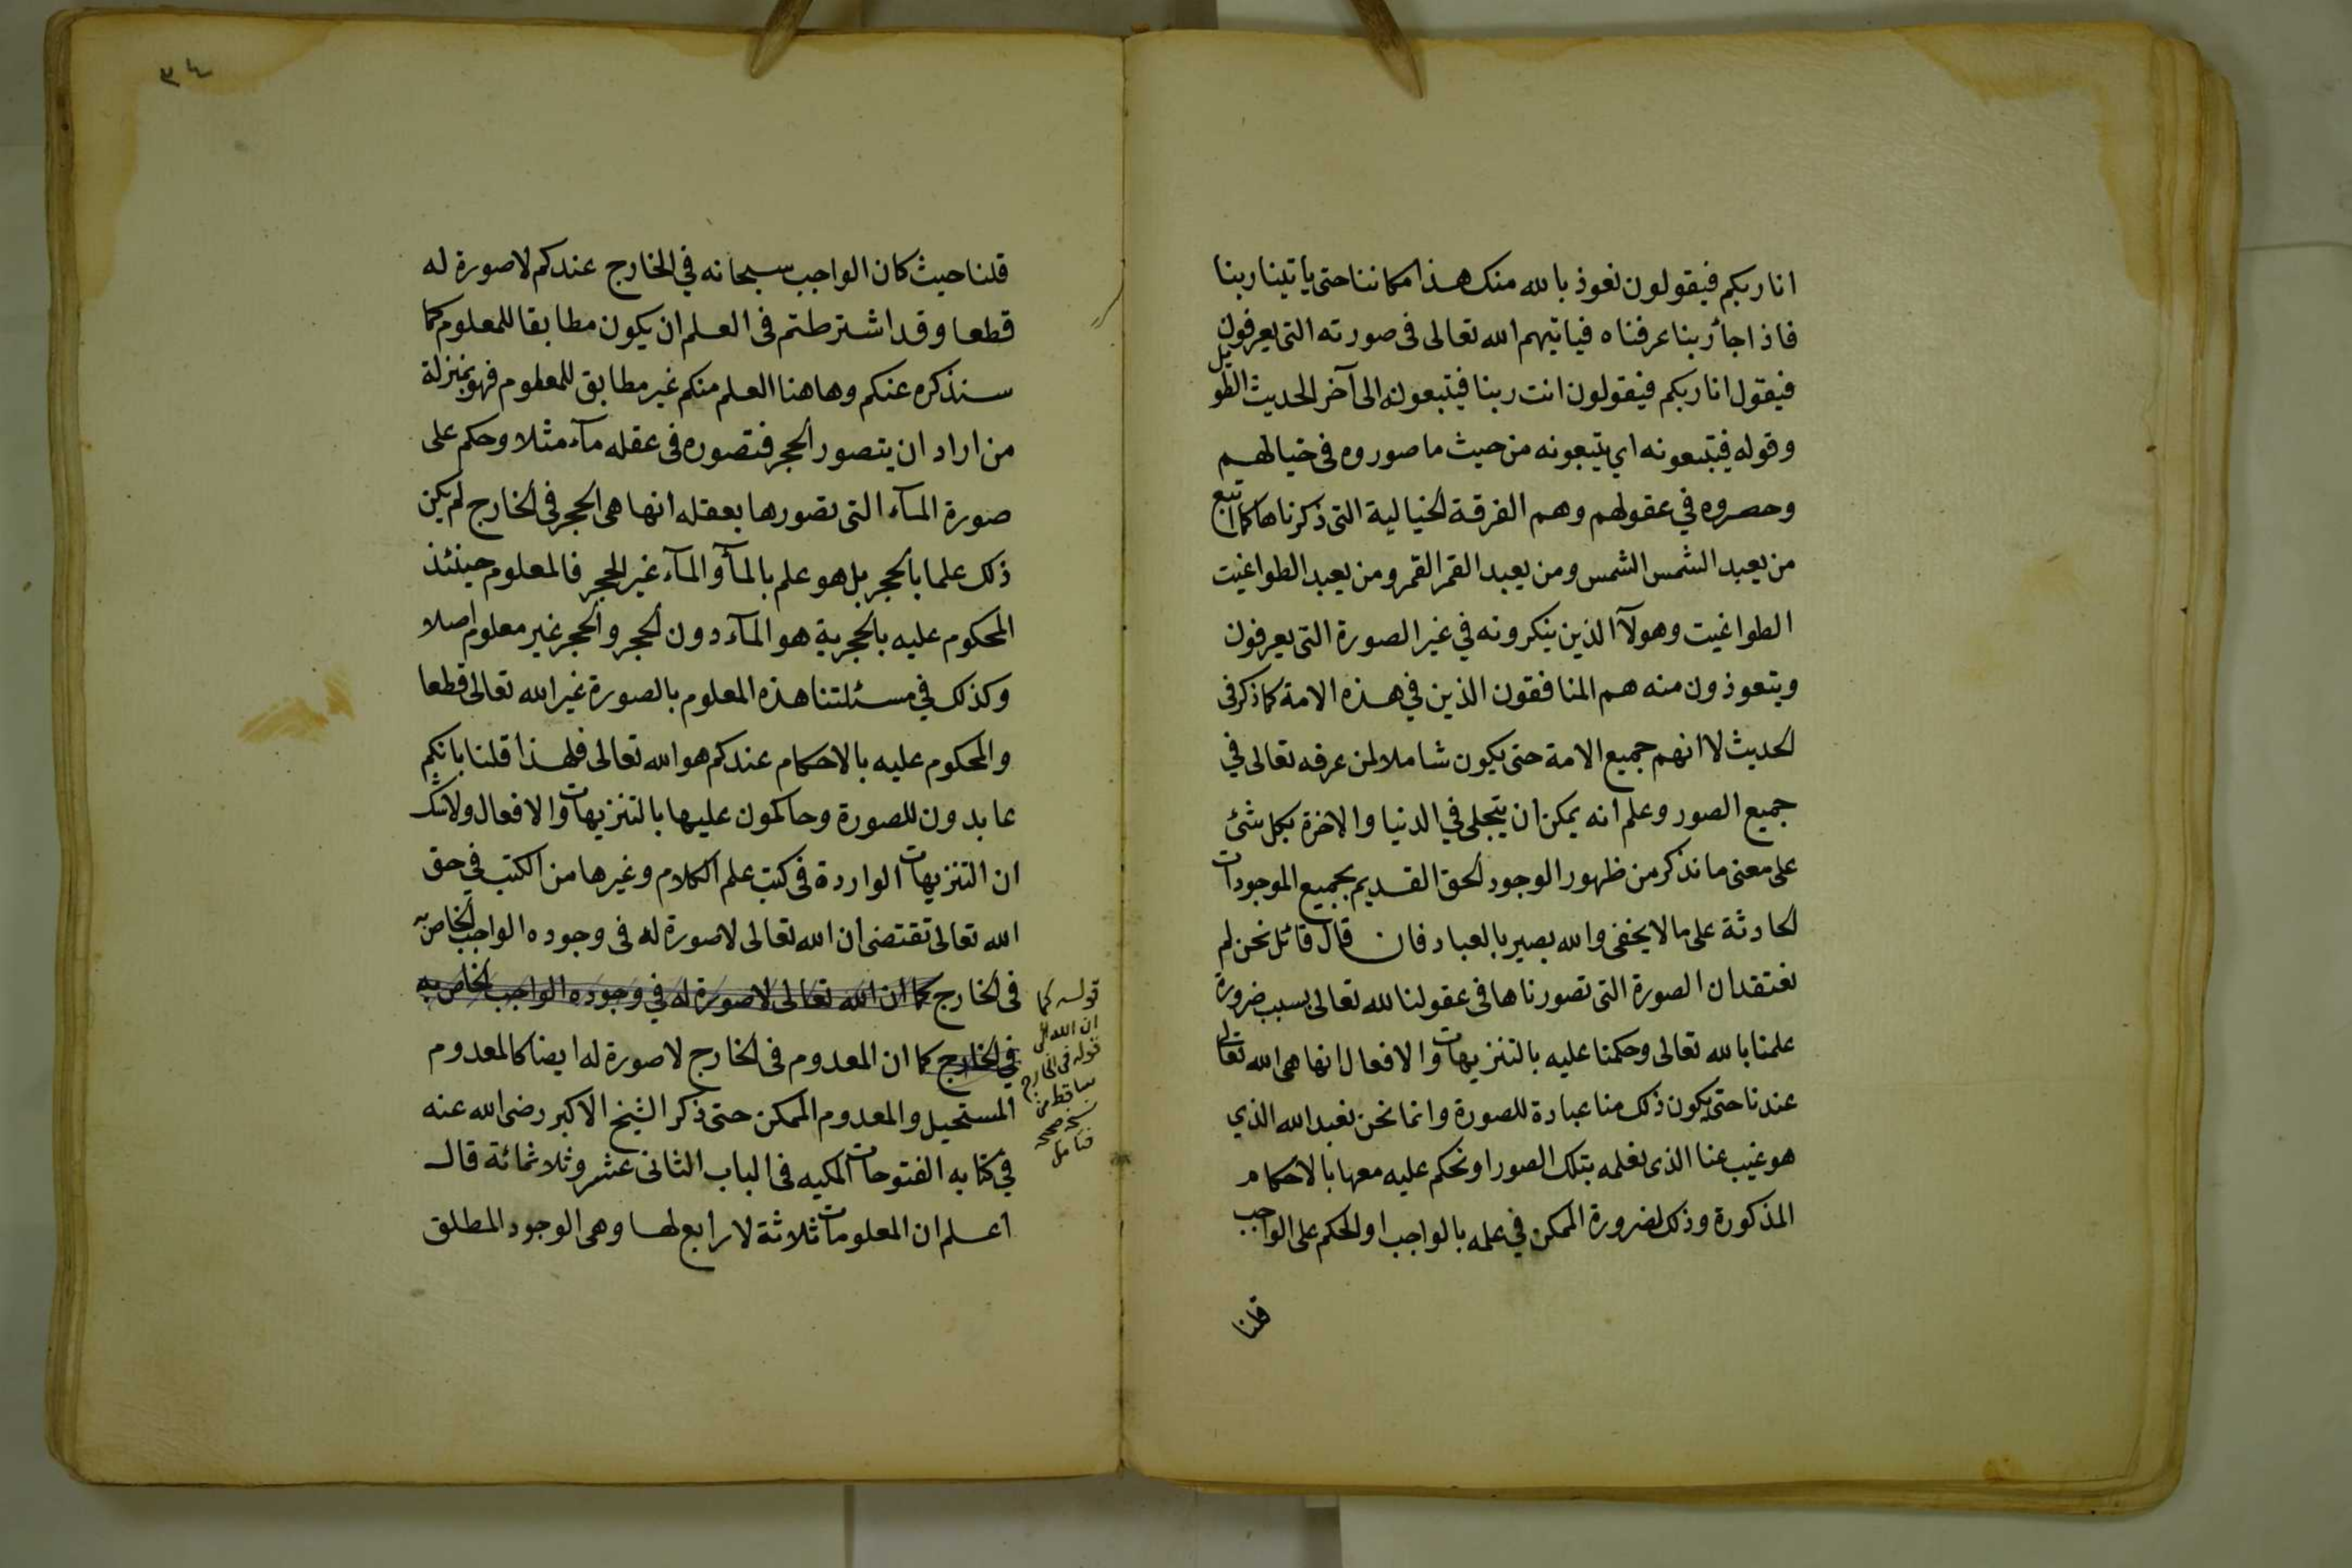 انا ربكم فيقولون نعوذ بالله منك هذا مكاننا حتى ياتينا ربنا
فاذا جأ ربنا عرفناه فياتيهم الله تعالى فى صورته التى يعرفون
فيقول انا ربكم فيقولون انت ربنا فيتبعونه الى آخر الحديث الطويل
وقوله فيتبعونه اي يتبعونه من حيث ما صوروه فى خيالهم
وحصروه في عقولهم وهم الفرقة الخيالية التى ذكرناها كما اتبع
من يعبد الشمس الشمس ومن يعبد القمر القمر ومن يعبد الطواغيت
الطواغيت وهولآ الذين ينكرونه في غير الصورة التى يعرفون
ويتعوذون منه هم المنافقون الذين في هذه الامة كما ذكر فى
الحديث لا انهم جميع الامة حتى يكون شاملا لمن عرفه تعالى في
جميع الصور وعلم انه يمكن ان يتجلى في الدنيا والاخرة بكل شئ
على معنى ما نذكر من ظهور الوجود الحق القديم بجميع الموجودات
الحادثة على ما لا يخفى والله بصير بالعباد فان قال قائل نحن لم
نعتقد ان الصورة التى تصورناها فى عقولنا لله تعالى بسبب ضرورة
علمنا بالله تعالى وحكمنا عليه بالتنزيهات والافعال انها هى الله تعالى
عندنا حتى يكون ذلك منا عبادة للصورة وانما نحن نعبد الله الذي
هو غيب عنا الذى نعلمه بتلك الصور او نحكم عليه معها بالاحكام
المذكورة وذلك لضرورة الممكن في علمه بالواجب او الحكم على الواجب
قلنا
٣٤
قلنا حيث كان الواجب سبحانه في الخارج عندكم لا صورة له
قطعا وقد اشترطتم فى العلم ان يكون مطابقا للمعلوم كما
سنذكره عنكم وهاهنا العلم منكم غير مطابق للمعلوم فهو بمنزلة
من اراد ان يتصور الحجر فتصوره فى عقله مآء مثلا وحكم على
صورة المآء التى تصورها بعقله انها هى الحجر فى الخارج لم يكن
ذلك علما بالحجر بل هو علم بالمآ والمآء غير الحجر فالمعلوم حينئذ
المحكوم عليه بالحجرية هو المآء دون الحجر والحجر غير معلوم اصلا
وكذلك في مسئلتنا هذه المعلوم بالصورة غير الله تعالى قطعا
والمحكوم عليه بالاحكام عندكم هو الله تعالى فلهذا قلنا بانكم
عابدون للصورة وحاكمون عليها بالتنزيهات والافعال ولا شك
ان التنزيهات الواردة فى كتب علم الكلام وغيرها من الكتب في حق
الله تعالى تقتضى ان الله تعالى لا صورة له فى وجوده الواجب الخاص به
فى الخارج كما ان الله تعالى لا صورة له في وجوده الواجب الخاص به
في الخارج كما ان المعدوم فى الخارج لا صورة له ايضا كالمعدوم
المستحيل والمعدوم الممكن حتى ذكر الشيخ الاكبر رضى الله عنه
في كتابه الفتوحات المكيه فى الباب الثانى عشر وثلاثمائة قال
اعلم ان المعلومات ثلاثة لا رابع لها وهى الوجود المطلق
قوله كما
ان الله الى
قوله فى الخارج
ساقط من
نسخة صحيحة
فتامل